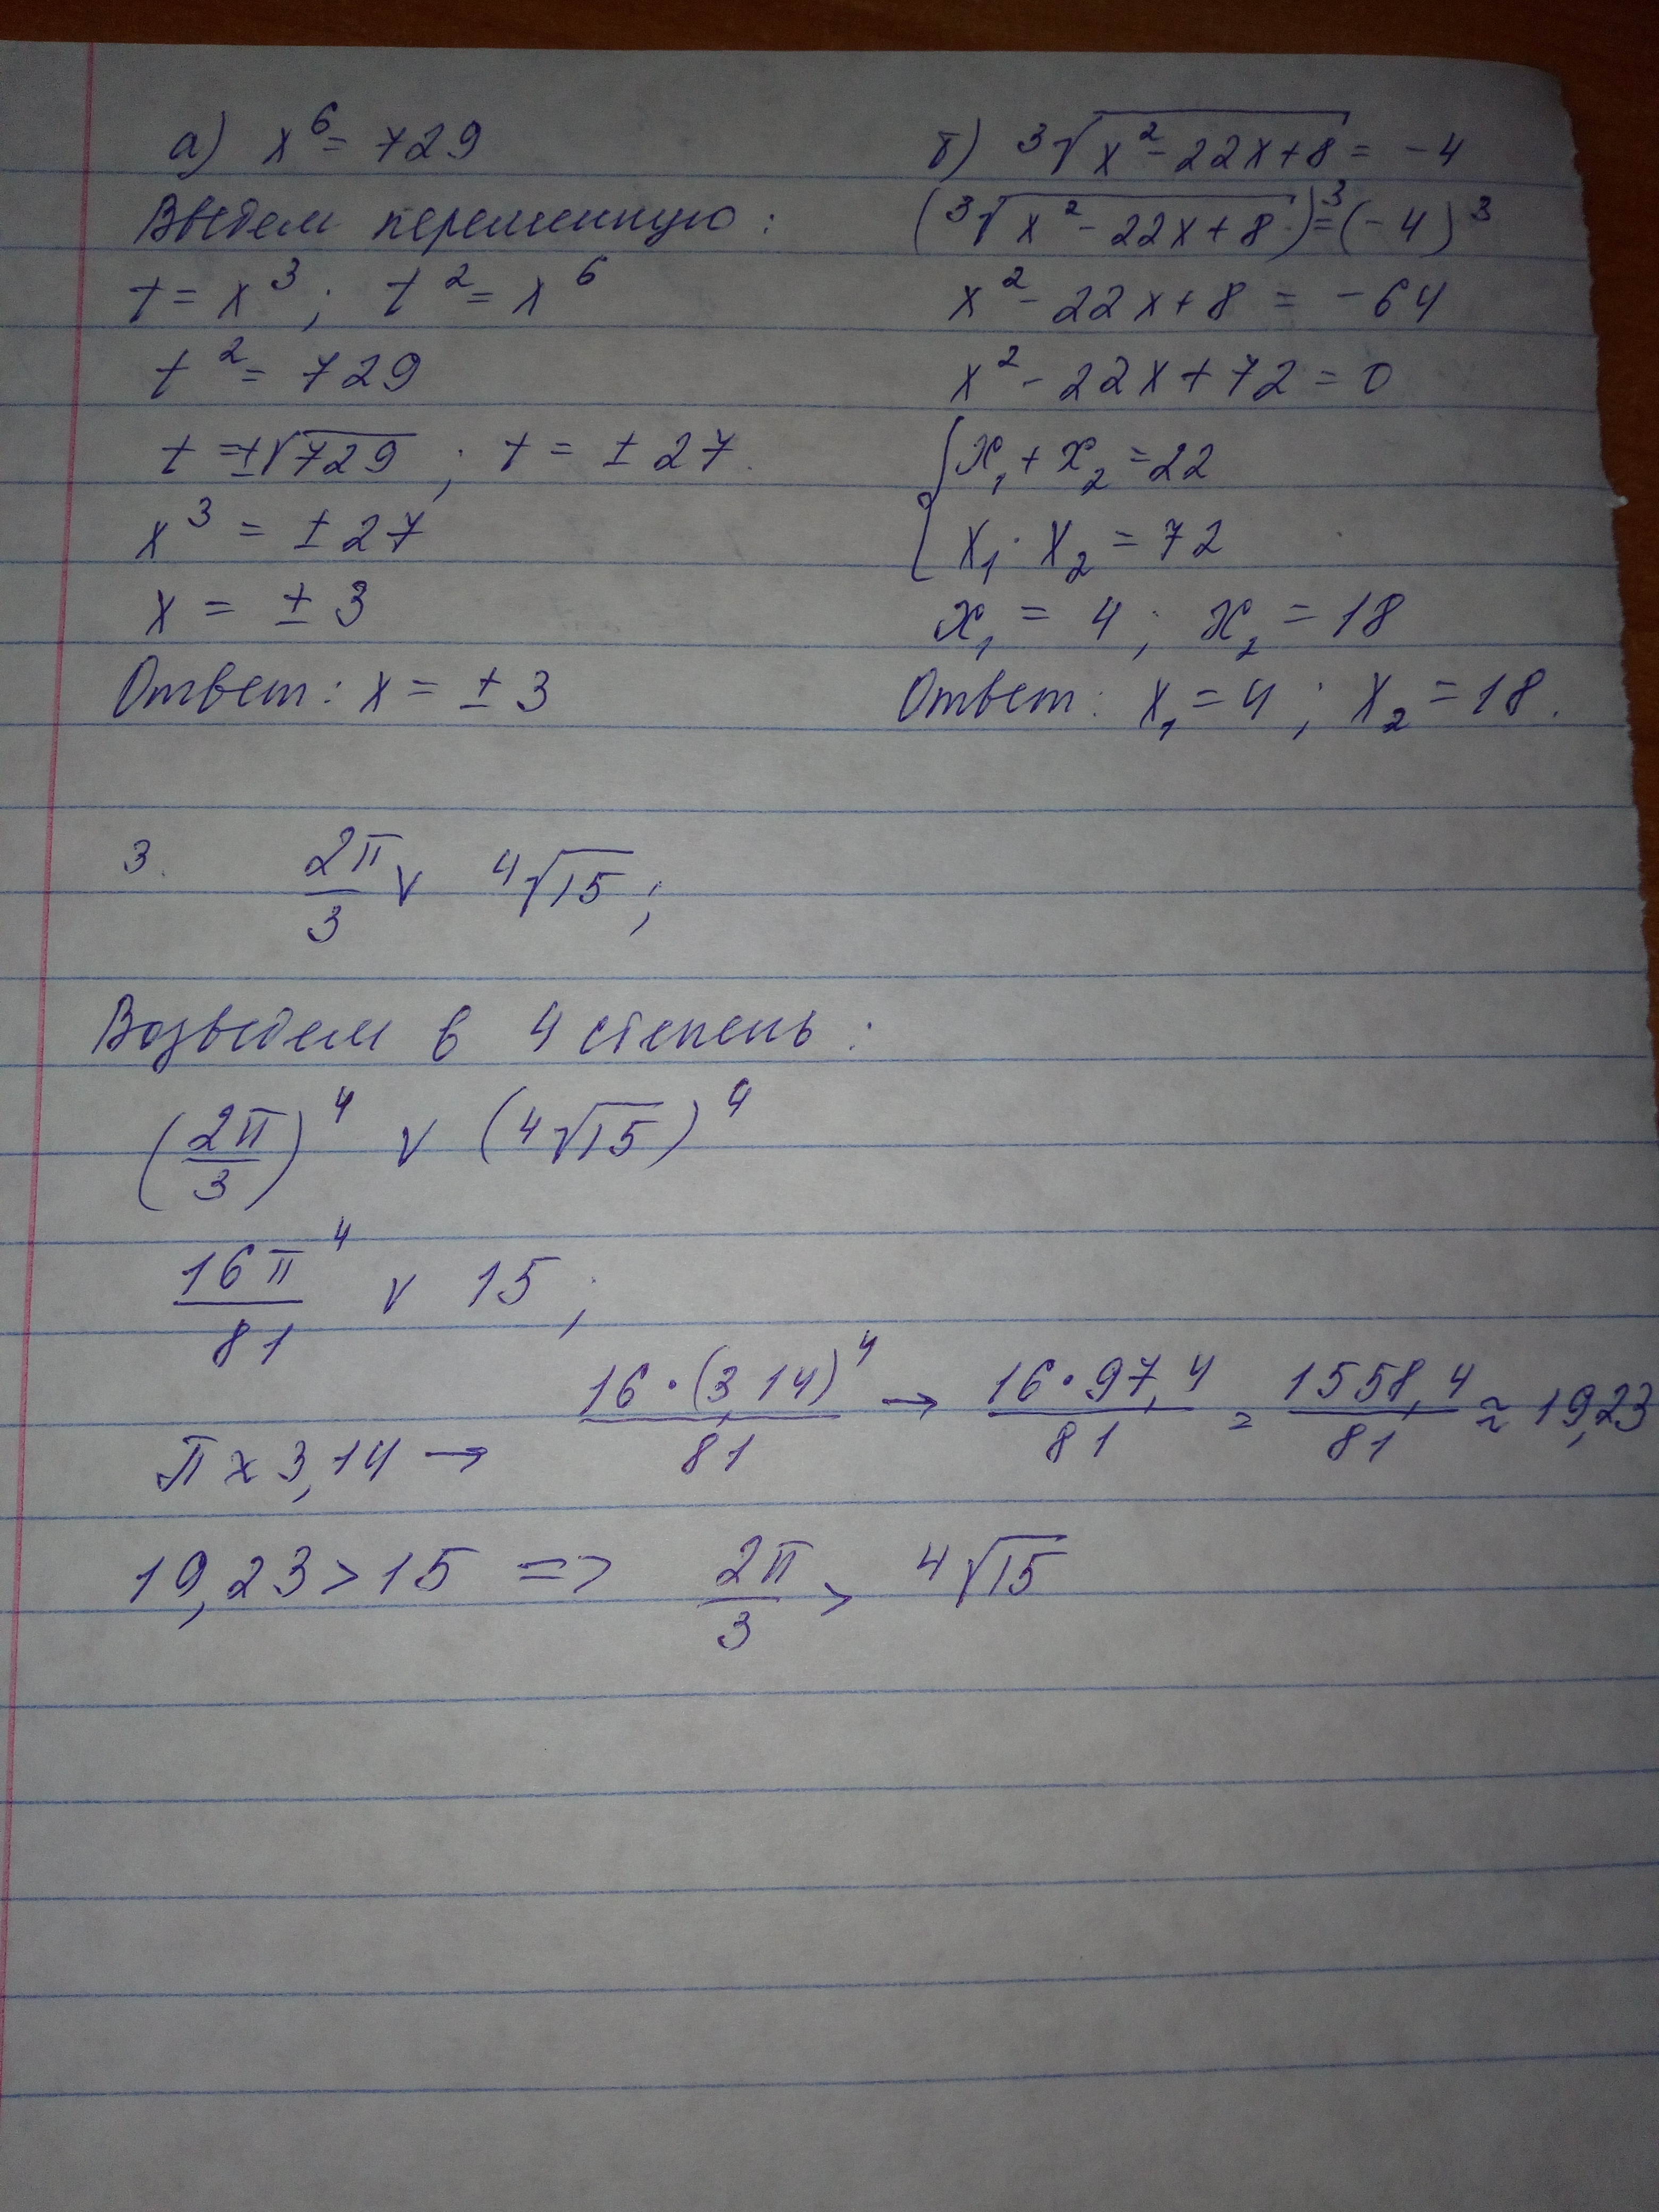 а) x⁶ = 729
Введем переменную:
t = x³; t² = x⁶
t² = 729
t = ±√729; t = ±27
x³ = ±27
x = ±3
Ответ: x = ±3
б) ³√(x² - 22x + 8) = -4
(³√(x² - 22x + 8))³ = (-4)³
x² - 22x + 8 = -64
x² - 22x + 72 = 0
{ x₁ + x₂ = 22
x₁ · x₂ = 72
x₁ = 4; x₂ = 18
Ответ: x₁ = 4; x₂ = 18.
3. 2π/3 ∨ ⁴√15;
Возведем в 4 степень:
(2π/3)⁴ ∨ (⁴√15)⁴
16π⁴/81 ∨ 15;
π ≈ 3,14 → 16·(3,14)⁴/81 → 16·97,4/81 = 1558,4/81 ≈ 19,23
19,23 > 15 => 2π/3 > ⁴√15